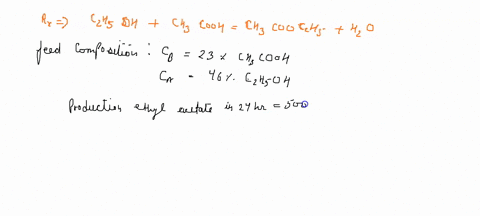 Rx => C2H5OH + CH3COOH = CH3COOC2H5 + H2O
feed composition : CB = 23 % CH3COOH
CA = 46 %. C2H5OH
Production ethyl acetate in 24 hr = 500